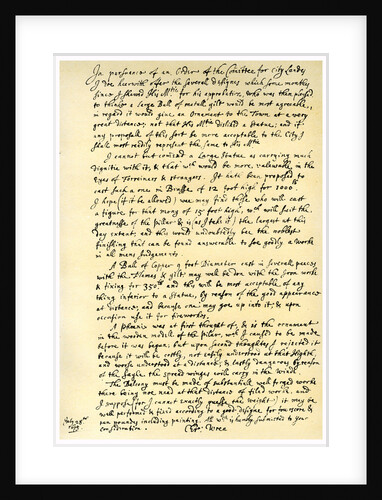 In persuance of an Order of the Comittee for City Landes
I doe heerwith offer the severall designes which some monthes
since I shewed His Matie for his approbation, who was then pleased
to thinke a large Ball of metall gilt would be most agreeable,
in regard it would give an Ornament to the Town at a very
great distance; not that His Matie disliked a Statue; and if
any proposall of this sort be more acceptable to the City I
shall most readily represent the same to His Matie
I cannot but comend a large Statue as carrying much
dignitie with it, & that wch would be more valewable in the
Eyes of Forreiners & strangers. It hath been proposed to
cast such a one in Brasse of 12 foot high for 1000lb
I hope (if it be allowed) wee may find those who will cast
a figure for that mony of 15 foot high, wch will suit the
greatnesse of the pillar & is (as I take it) the largest at this
day extant; and this would undoubtedly bee the noblest
finishing that can be found answerable to soe goodly a worke
in all mens Judgements.
A Ball of Copper, 9 foot Diameter cast in severall peeces
with the Flames & gilt, may well be don with the Iron worke
& fixing for 350lb and this will be most acceptable of any
thing inferior to a Statue, by reason of the good appearance
at distance, and because one may goe up into it; & upon
occasion use it for fireworkes.
A phœnix was at first thought of; & is the ornament
in the wooden modell of the pillar, wch I caused to be made
before it was begun; but upon second thoughtes I rejected it
because it will be costly, not easily understood at that Highth,
and worse understood at a distance; & lastly dangerous by reason
of the sayle the spread winges will carry in the winde.
The Balcony must be made of substantiall well forged worke
there being noe need at that distance of filed worke, and
I suppose (for I cannot exactly guesse the weight) it may be
well performed & fixed according to a good designe for fourscore &
ten poundes including painting. All wch is humbly submitted to your
consideration.
July 28th
1675
Chr: Wren